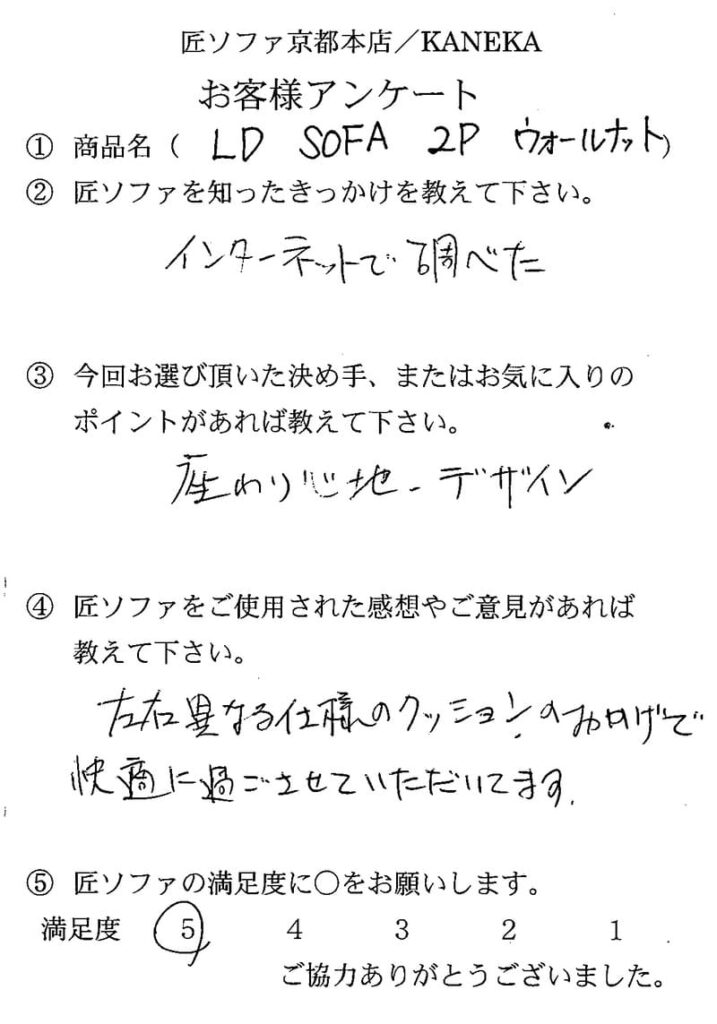 匠ソファ京都本店／KANEKA
お客様アンケート
① 商品名（ LD SOFA 2P ウォールナット）
② 匠ソファを知ったきっかけを教えて下さい。
インターネットで調べた
③ 今回お選び頂いた決め手、またはお気に入りの
ポイントがあれば教えて下さい。
座わり心地、デザイン
④ 匠ソファをご使用された感想やご意見があれば
教えて下さい。
左右異なる仕様のクッションのおかげで
快適に過ごさせていただいてます.
⑤ 匠ソファの満足度に○をお願いします。
満足度 5 4 3 2 1
ご協力ありがとうございました。